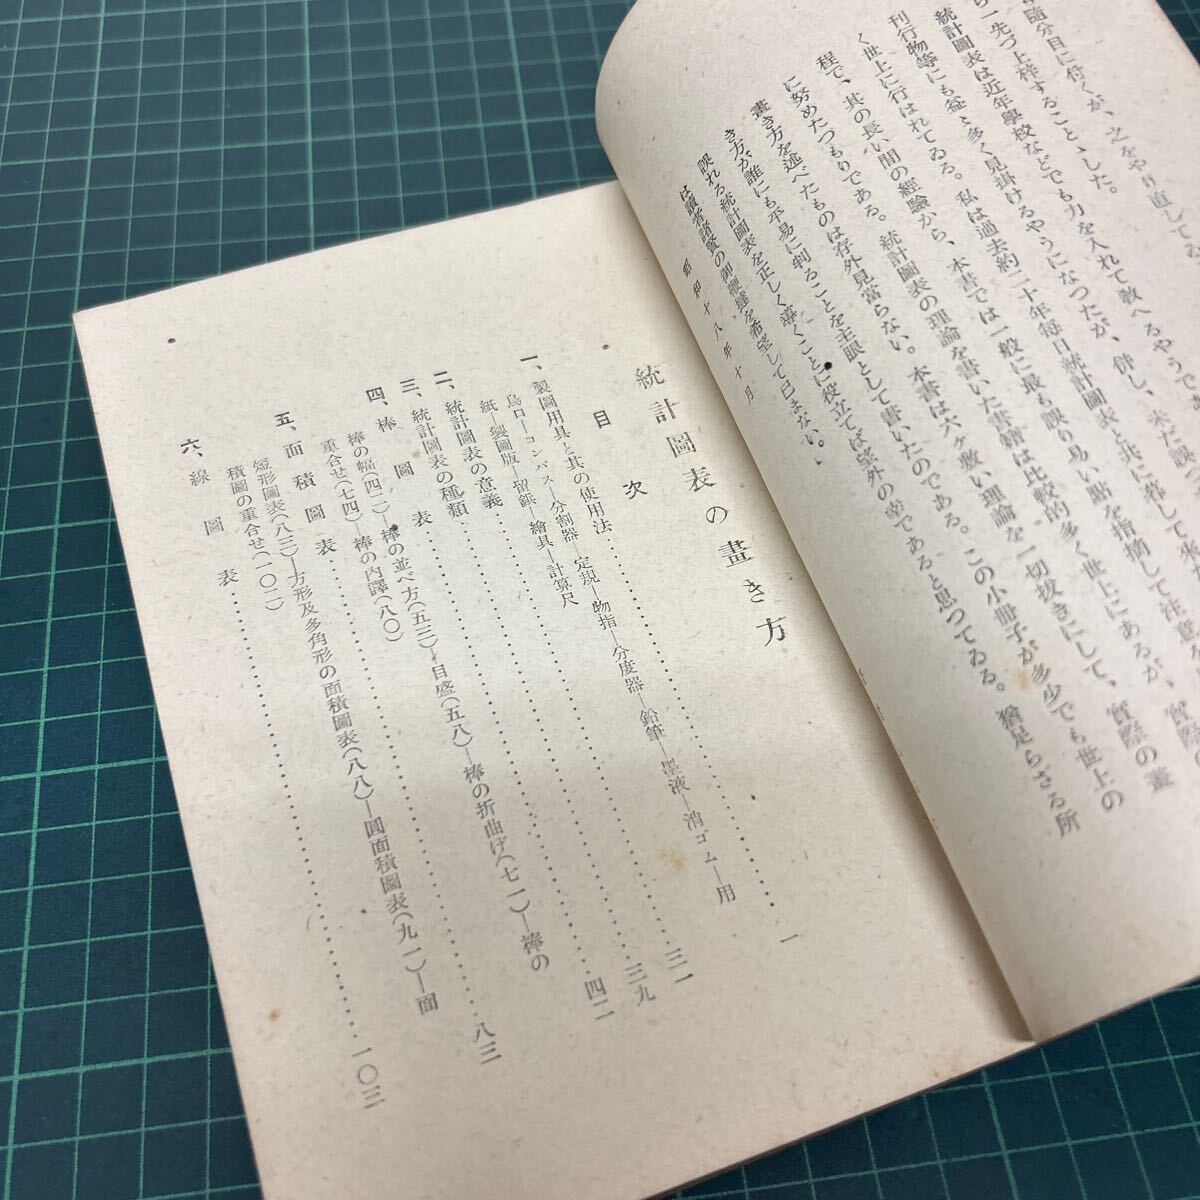 も隨分目に付くが、之をやり直してみ
ら一先づ上梓すること丶した。
統計圖表は近年學校などでも力を入れて敎へるやうで
刊行物等にも益〻多く見掛けるやうになつたが、併し、未だ誤
く世上に行はれてゐる。私は過去約二十年每日統計圖表と共に暮して來た
程で、其の長い間の經驗から、本書では一般に最も誤り易い點を指摘して注意を
に努めたつもりである。統計圖表の理論を書いた書籍は比較的多く世上にあるが、實際の
畫き方を述べたものは存外見當らない。本書は六ケ敷い理論を一切拔きにして、實際の畫
き方が誰にも平易に判ることを主眼として書いたのである。この小冊子が多少でも世上の
誤れる統計圖表を正しく導くことに役立てば望外の幸であると思つてゐる。猶足らざる所
は讀者諸賢の御鞭撻を希望して已まない。
昭和十八年十月
統計圖表の畫き方
目次
一、製圖用具と其の使用法……一
烏口―コンパス―分割器―定規―物指―分度器―鉛筆―墨液―消ゴム―用
紙―製圖版―留鋲―繪具―計算尺
二、統計圖表の意義……三一
三、統計圖表の種類……三九
四、棒圖表……四二
棒の幅(四二)―棒の並べ方(五三)―目盛(五八)―棒の折曲げ(七一)―棒の
重合せ(七四)―棒の內譯(八〇)
五、面積圖表……八三
短形圖表(八三)―方形及多角形の面積圖表(八八)―圓面積圖表(九一)―面
積圖の重合せ(一〇二)
六、線圖表……一〇三